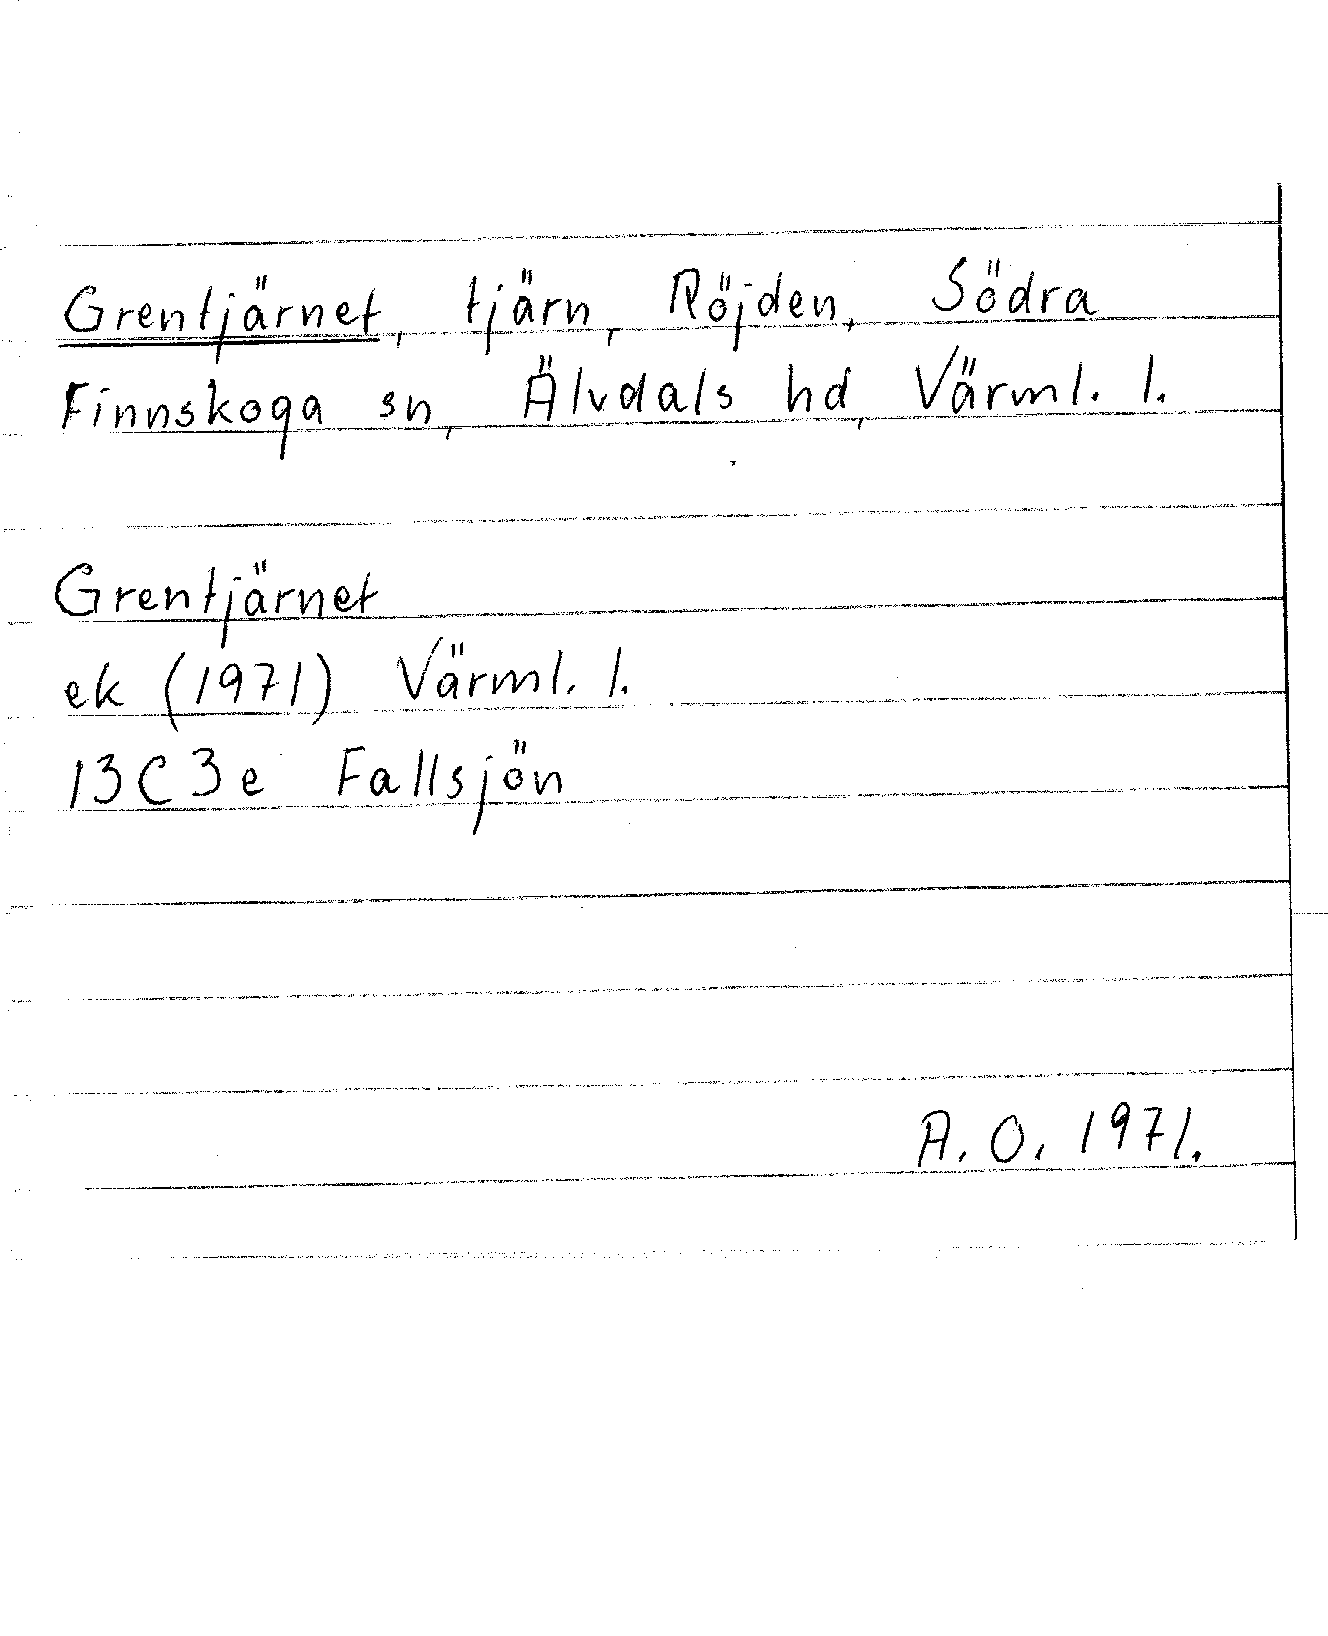 Grentjärnet, tjärn, Röjden, Södra
Finnskoga sn, Älvdals hd, Värml. l.
Grentjärnet
ek (1971) Värml. l.
13C3e Fallsjön
A. O. 1971.